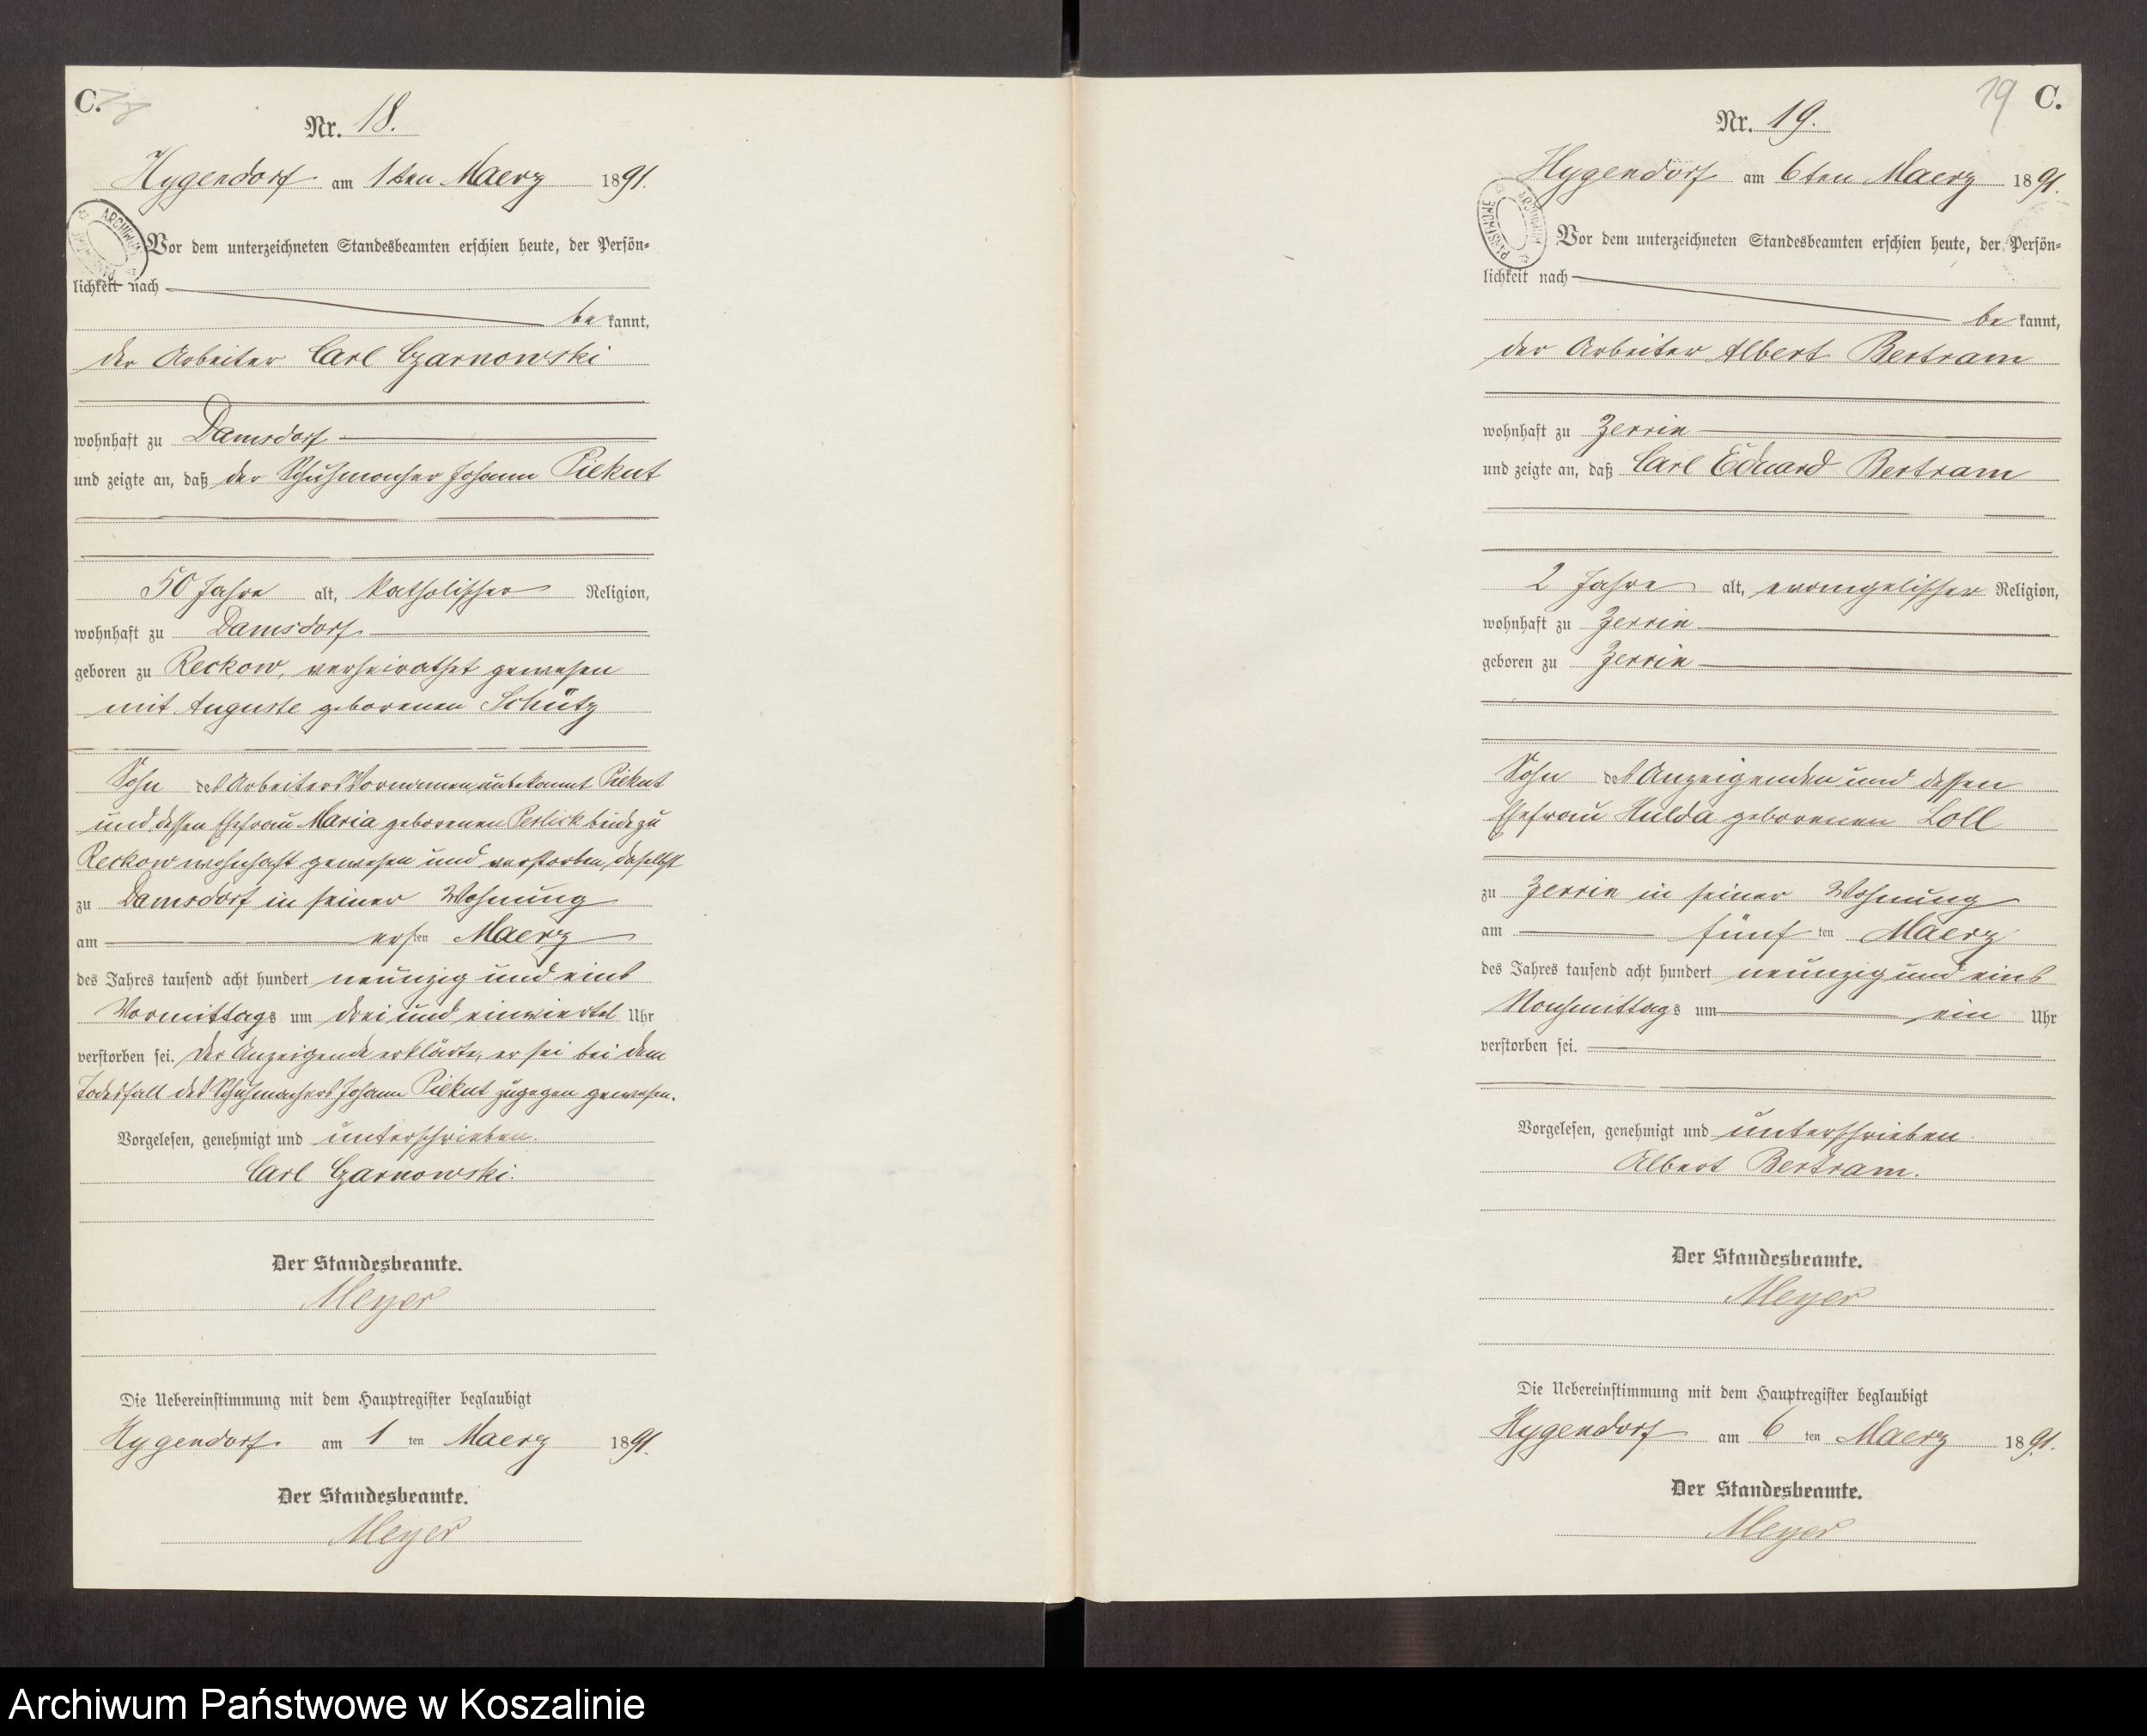 C.
Nr. 18.
Hygendorf am 1ten Maerz 1891.
Vor dem unterzeichneten Standesbeamten erschien heute, der Persön=
lichkeit nach
be kannt,
der Arbeiter Carl Czarnowski
wohnhaft zu Damsdorf
und zeigte an, daß der Schuhmacher Johann Piekut
50 Jahre alt, katholischer Religion,
wohnhaft zu Damsdorf
geboren zu Reckow, verheirathet gewesen
mit Auguste geborenen Schütz
Sohn des Arbeiters Vornamen unbekannt Piekut
und dessen Ehefrau Maria geborenen Perlick beide zu
Reckow wohnhaft gewesen und verstorben, daselbst
zu Damsdorf in seiner Wohnung
am ersten Maerz
des Jahres tausend acht hundert neunzig und eins
Vormittags um drei und einviertel Uhr
verstorben sei. Der Anzeigende erklärte, er sei bei dem
Todesfall des Schuhmachers Johann Piekut zugegen gewesen.
Vorgelesen, genehmigt und unterschrieben.
Carl Czarnowski.
Der Standesbeamte.
Meyer
Die Uebereinstimmung mit dem Hauptregister beglaubigt
Hygendorf am 1 ten Maerz 1891.
Der Standesbeamte.
Meyer
19 C.
Nr. 19.
Hygendorf am 6ten Maerz 1891.
ARCHIWUM PAŃSTWOWE
Vor dem unterzeichneten Standesbeamten erschien heute, der Persön=
lichkeit nach
be kannt,
der Arbeiter Albert Bertram
wohnhaft zu Zerrin
und zeigte an, daß Carl Eduard Bertram
2 Jahre alt, evangelischer Religion,
wohnhaft zu Zerrin
geboren zu Zerrin
Sohn des Anzeigenden und dessen
Ehefrau Hulda geborenen Loll
zu Zerrin in seiner Wohnung
am fünf ten Maerz
des Jahres tausend acht hundert neunzig und eins
Nachmittags um ein Uhr
verstorben sei.
Vorgelesen, genehmigt und unterschrieben
Albert Bertram.
Der Standesbeamte.
Meyer
Die Uebereinstimmung mit dem Hauptregister beglaubigt
Hygendorf am 6 ten Maerz 1891.
Der Standesbeamte.
Meyer
Archiwum Państwowe w Koszalinie